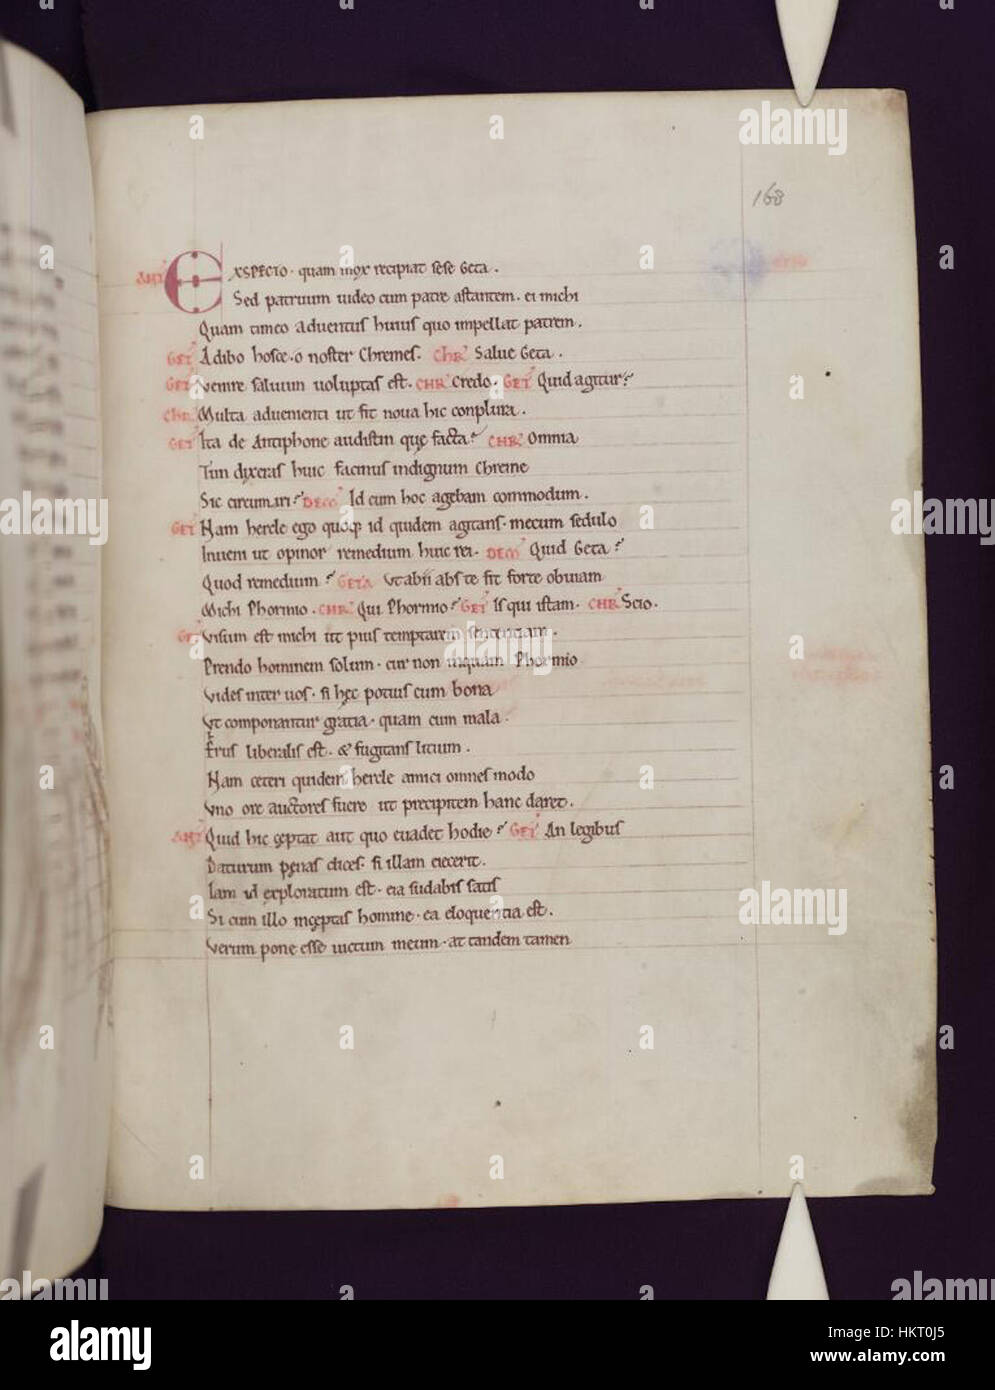 168
ANT EXSPECTO· quam mox recipiat sese Geta.
Sed patruum uideo cum patre astantem. ei michi
Quam timeo aduentus huius quo impellat patrem.
GET Adibo hosce. o noster Chremes. CHR Salue Geta.
GET Venire saluum uoluptas est. CHR Credo. GET Quid agitur?
CHR Multa aduenienti ut fit noua hic conplura.
GET Ita de Antiphone audistin que facta? CHR Omnia
Tun dixeras huic facinus indignum Chreme
Sic circumiri? DEM Id cum hoc agebam commodum.
GET Nam hercle ego quoque id quidem agitans· mecum sedulo
Inueni ut opinor remedium huic rei. DEM Quid Geta?
Quod remedium? GETA Ut abii abs te fit forte obuiam
Michi Phormio. CHR Qui Phormio? GET Is qui istam. CHR Scio.
GET Visum est michi ut pius temptarem sententiam.
Prendo hominem solum· cur non inquam Phormio
Vides inter uos· si hec potius cum bona
Vt componantur gratia· quam cum mala.
Erus liberalis est. & fugitans litium.
Nam ceteri quidem hercle amici omnes modo
Vno ore auctores fuere ut precipitem hanc daret.
ANT Quid hic ceptat aut quo euadet hodie? GET An legibus
Daturum penas dices· si illam eiecerit.
Iam id exploratum est. eia sudabis satis
Si cum illo inceptas homine· ea eloquentia est.
Verum pone esse uictum meum· at tandem tamen
alamy
Image ID: HKT0J5
www.alamy.com